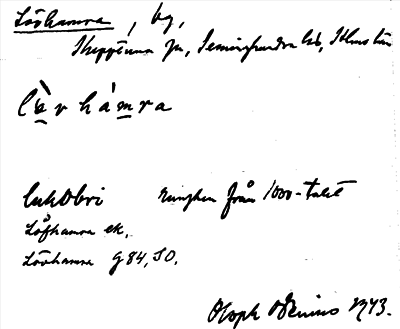 Lövhamra, by,
Skepptuna sn, Seminghundra hd, Sthms län
lœ̀vhámra
lukObri runsten från 1000-talet
Löfhamra ek.
Lövhamra G 84, SO.
Oloph Odenius 1943.